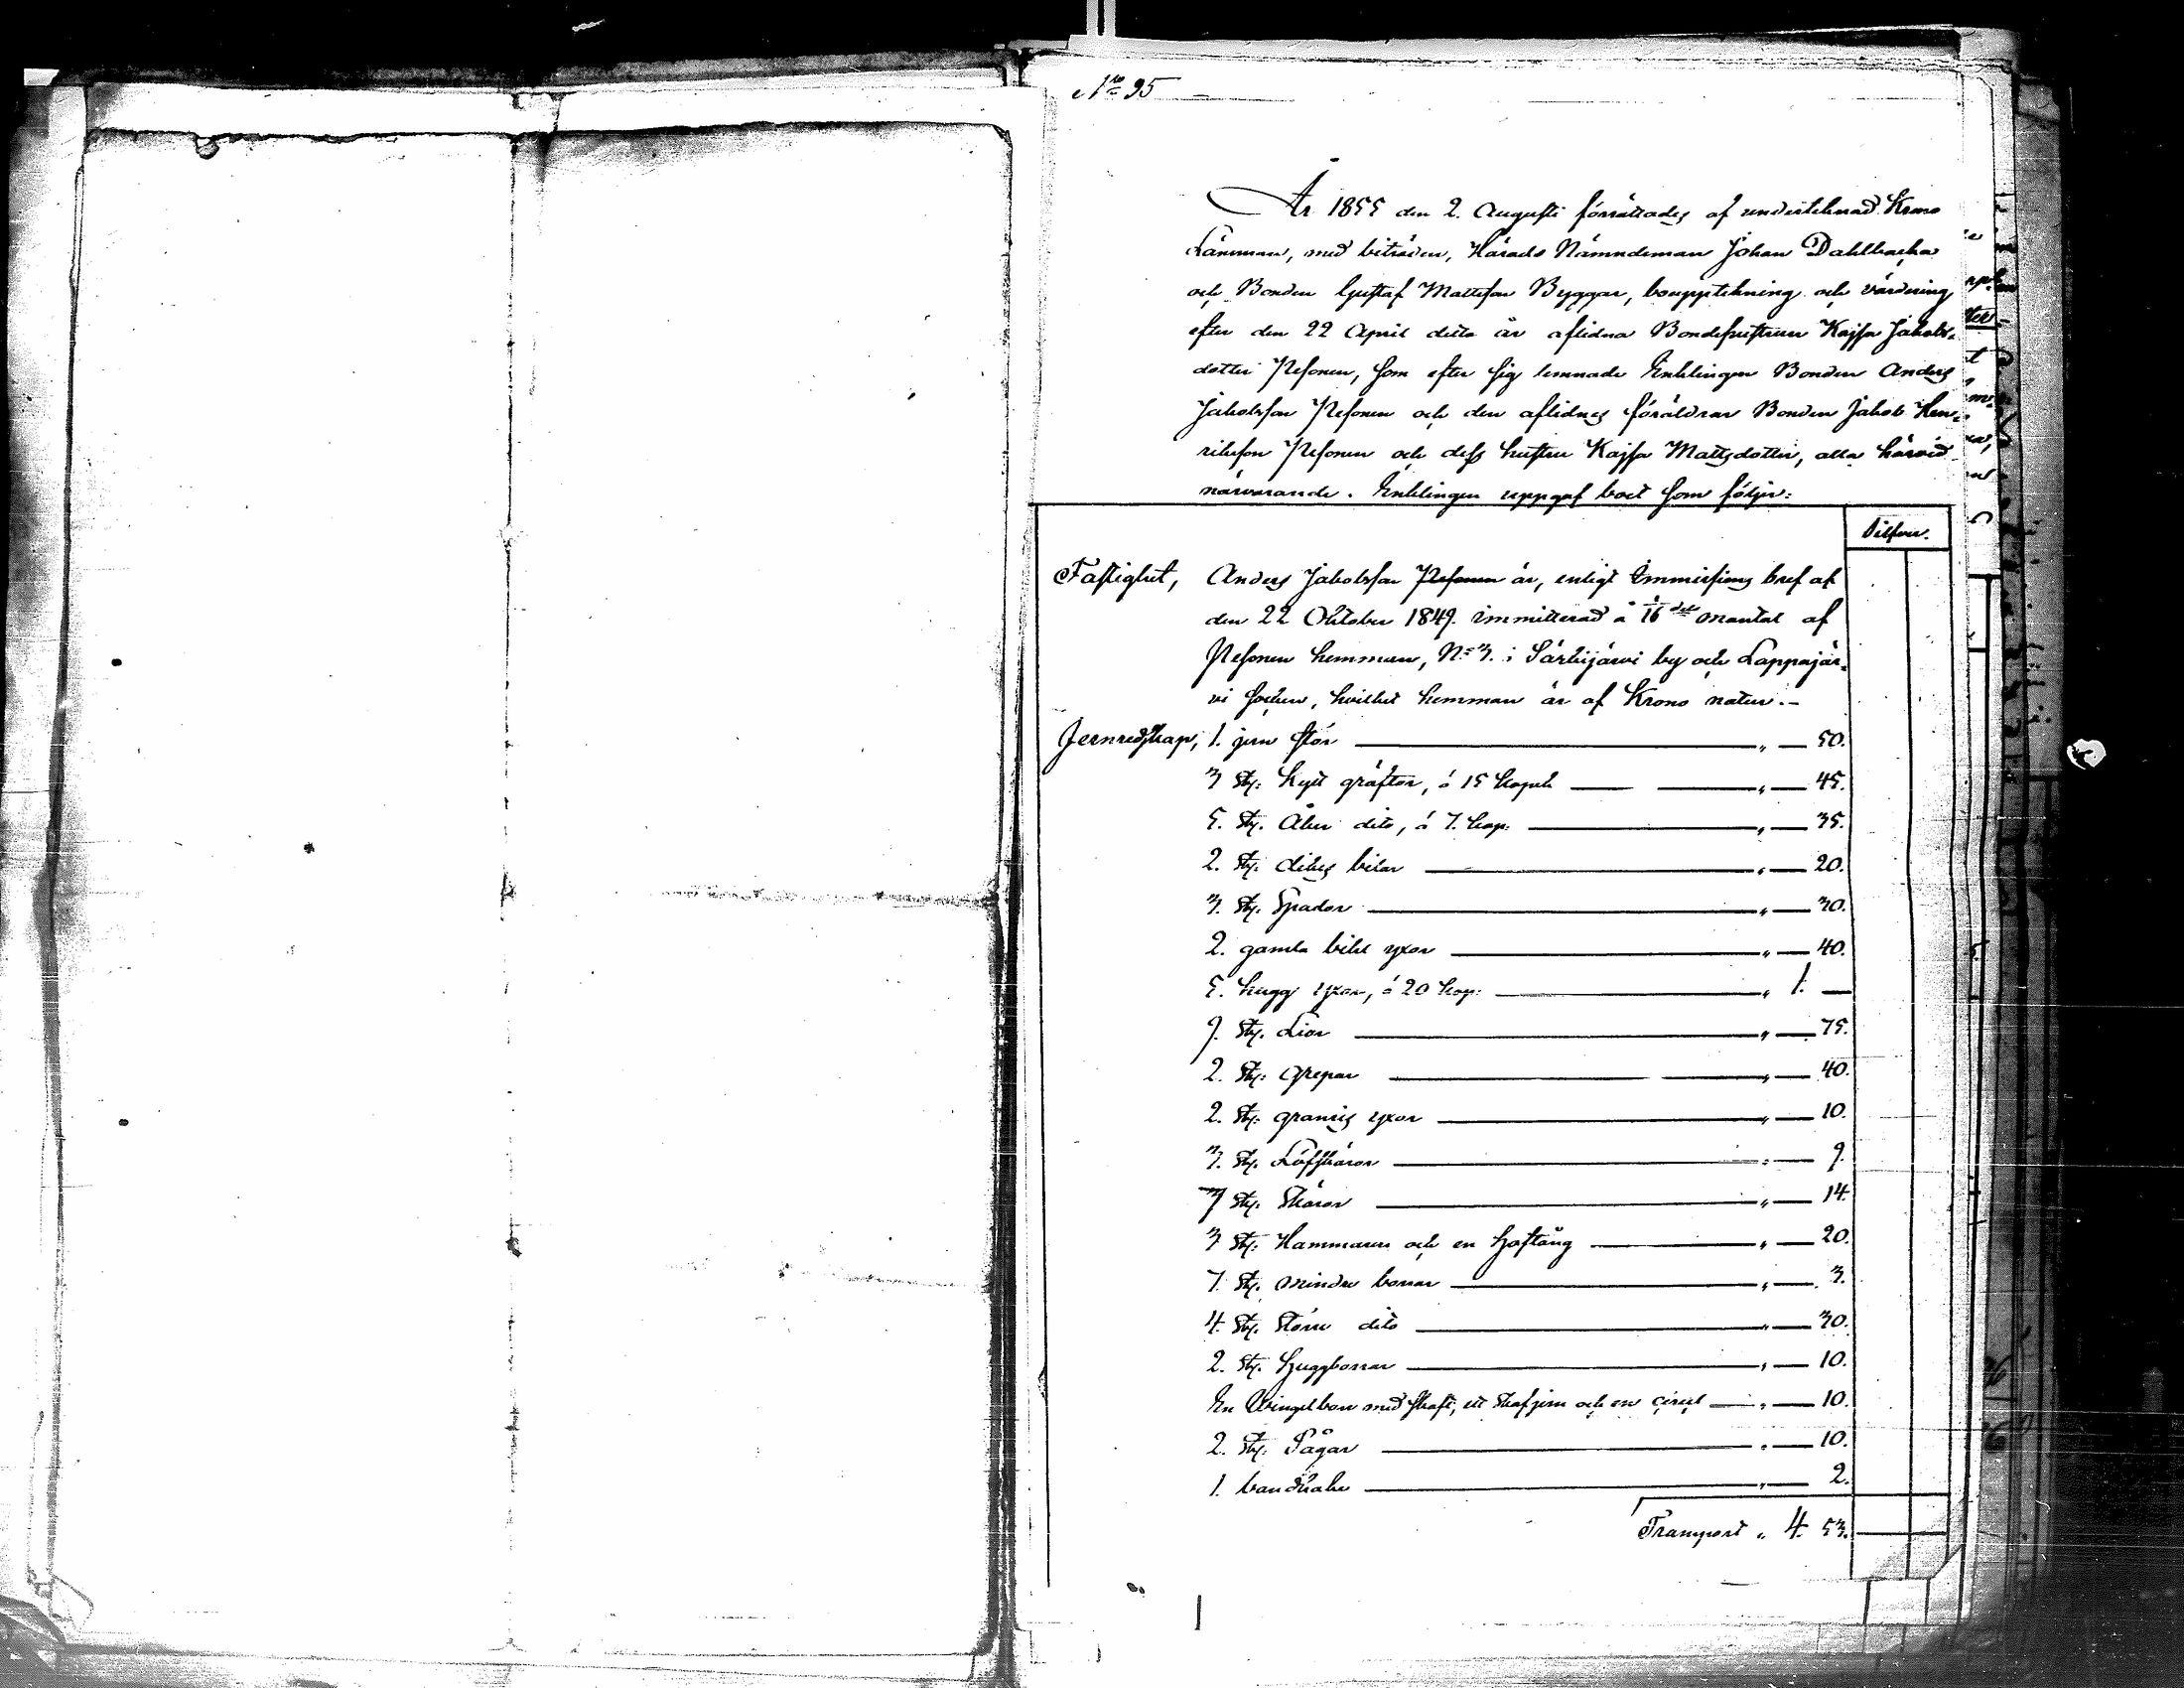 No 95
År 1855 den 2. Augusti förrättades af undertecknad Krono
Länsman, med biträden, Härads Nämndeman Johan Dahlbacka
och Bonden Gustaf Mattsson Byggar, bouppteckning och värdering
efter den 22 April detta år aflidna Bondehustrun Kajsa Jakobs-
dotter Pesonen, som efter sig lemnade Enklingen Bonden Anders
Jakobsson Pesonen och den aflidnes föräldrar Bonden Jakob Hen-
riksson Pesonen och dess hustru Kajsa Mattsdotter, alla härvid
närvarande. Enklingen uppgaf boet som följer:
Silfver.
Fastighet, Anders Jakobsson Pesonen är, enligt Immissions bref af
den 22 Oktober 1849. immitterad å 1/16 del mantal af
Pesonen hemman, No 3. i Särkijärvi by och Lappajär-
vi socken, hvilket hemman är af Krono natur.-
Jernredskap, 1. jern stör " 50.
3 st. kytt gräftor, á 15 kopek " 45.
5. st. Åker dito, á 7. kop: " 35.
2. st. dikes bilar " 20.
3. st. Spador " 30.
2. gamla bilt yxor " 40.
5. hugg yxor, á 20 kop: " 1. —
9. st. Liar " 75.
2. st. grepar " 40.
2. st. granris yxor " 10.
3. st. Löfskäror " 9.
7 st. Skäror " 14.
3 st. Hammaren och en Hoftång " 20.
7. st. mindre borrar " 3.
4. st. Större dito " 30.
2. st. Huggborrar " 10.
En Vingelborr med skaft, ett skafjern och en circel " 10.
2. st. Sågar " 10.
1. bandhake " 2.
Transport " 4. 53.